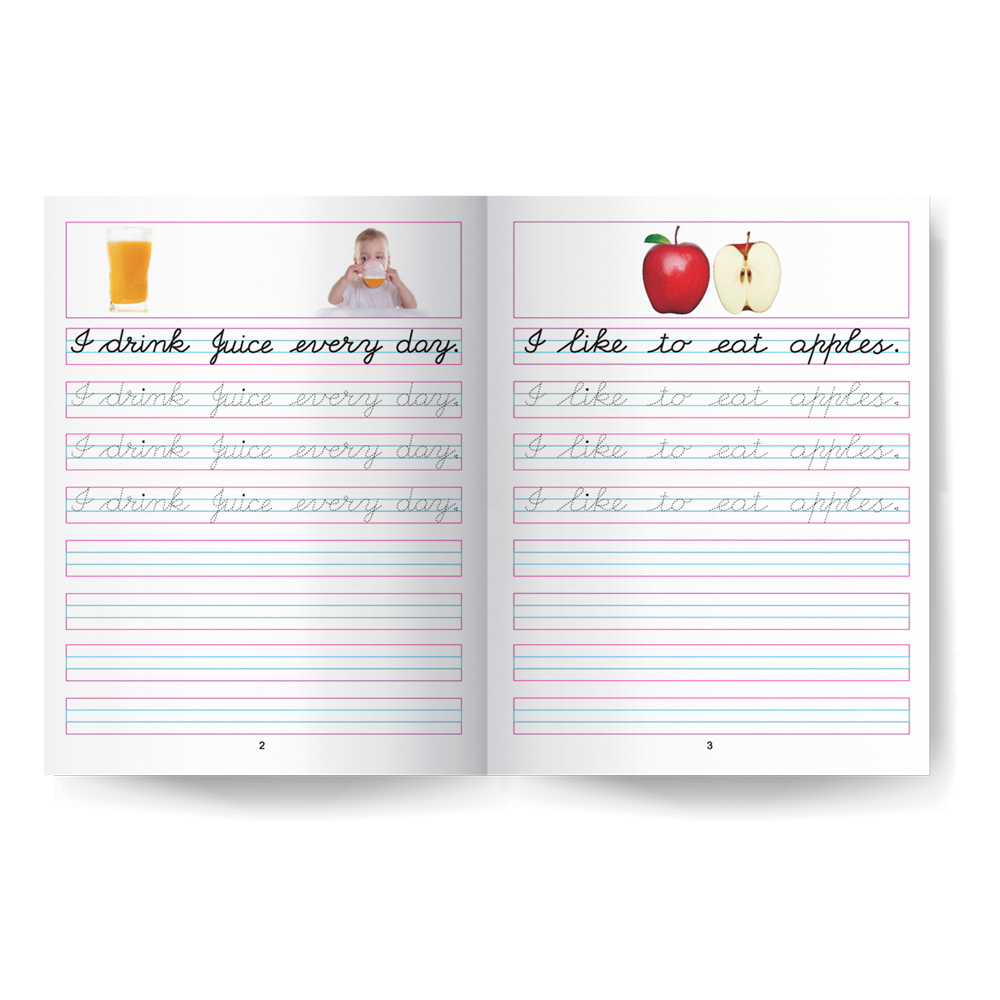 I drink Juice every day.
I drink Juice every day.
I drink Juice every day.
I drink Juice every day.
2
I like to eat apples.
I like to eat apples.
I like to eat apples.
I like to eat apples.
3